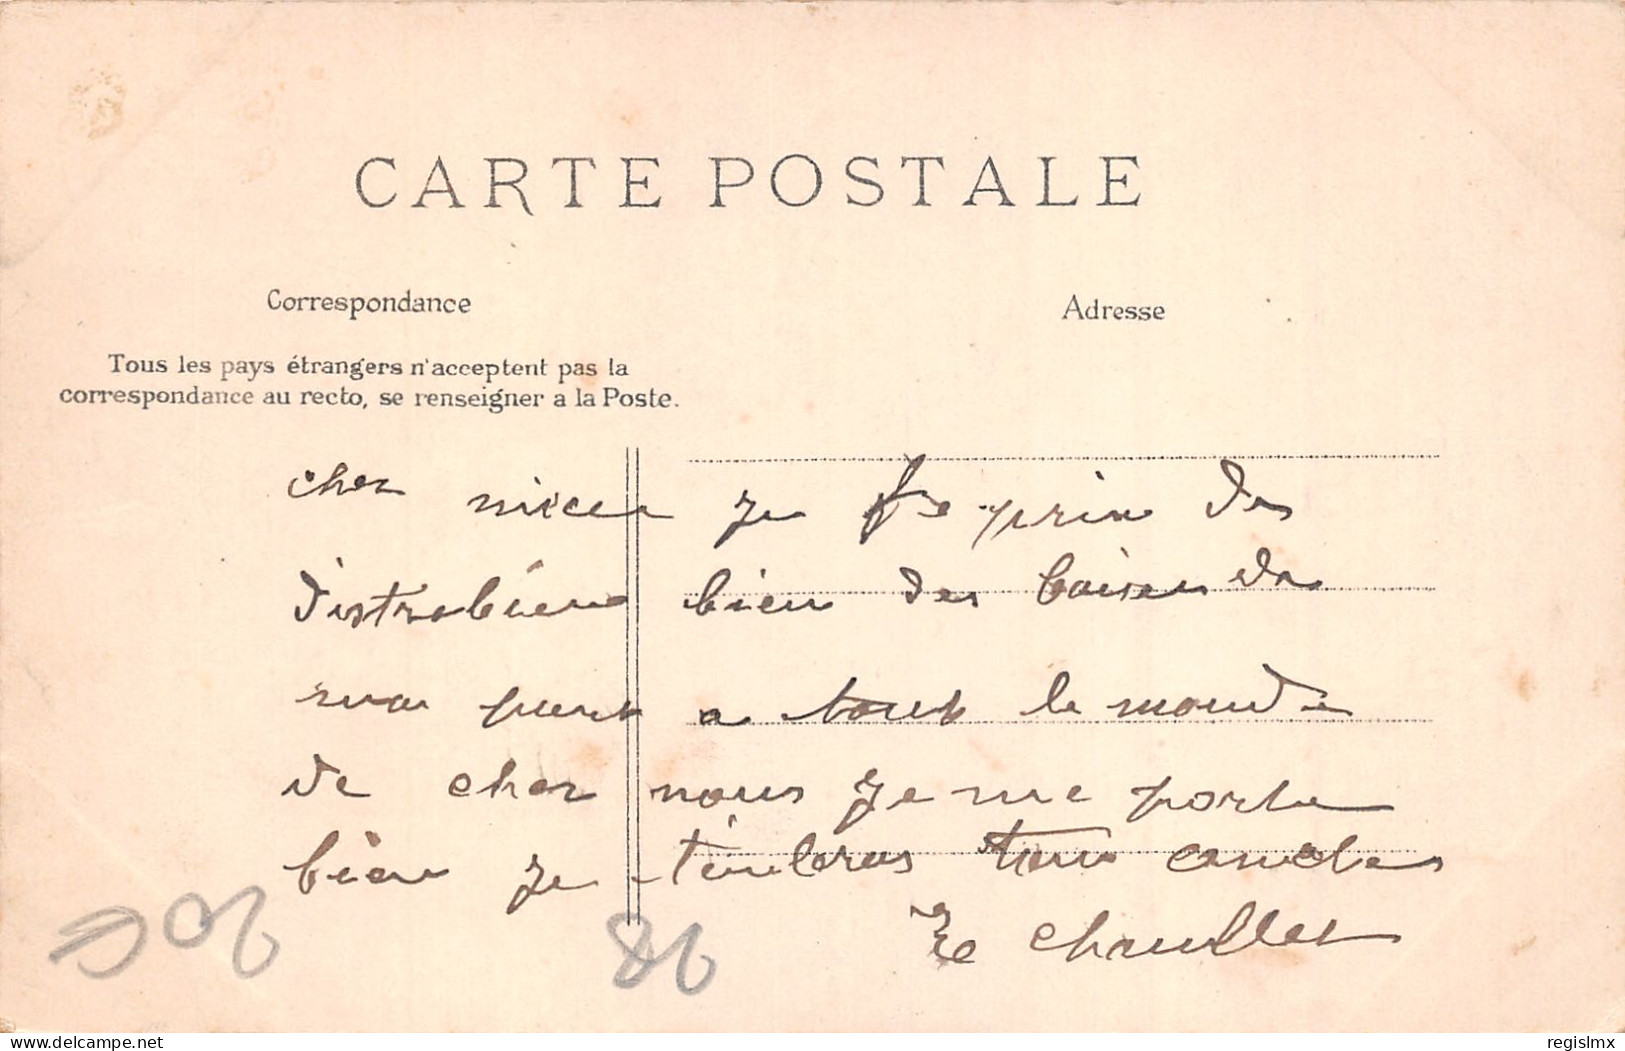 CARTE POSTALE
Correspondance
Adresse
Tous les pays étrangers n'acceptent pas la
correspondance au recto, se renseigner a la Poste.
cher niece je te prin de
distrebuere bien des baiser de
ma part a tout le monde
de cher nous je me porte
bien je tembras ton oncle
E Chaullet
20€
86
www.delcampe.net
regislmx